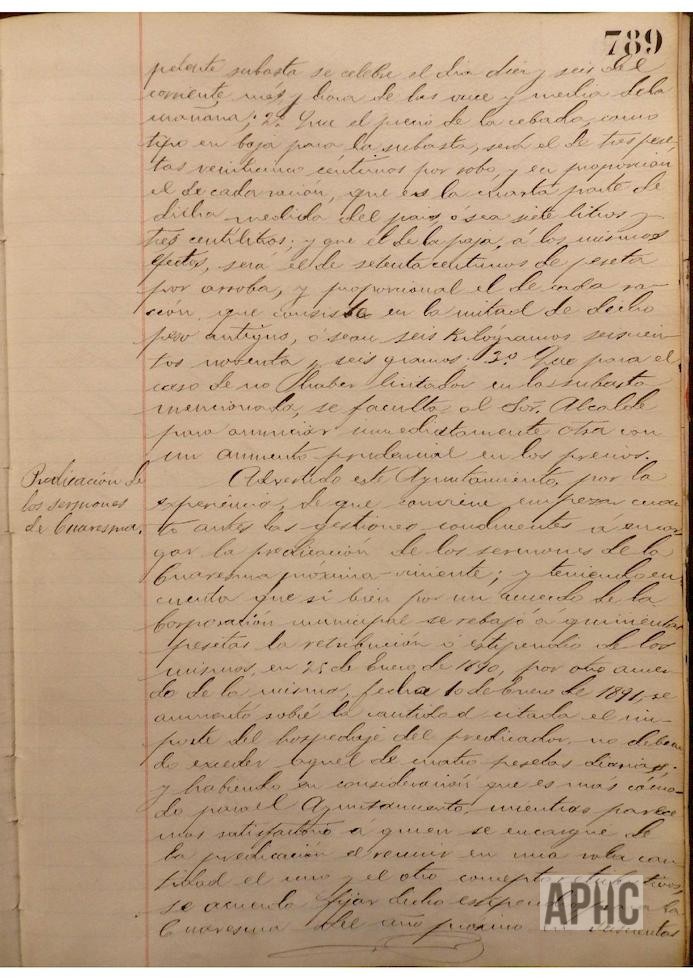 789
petente subasta se celebre el dia diez y seis del
corriente més y hora de las once y media de la
mañana: 2º Que el precio de la cebada, como
tipo en baja para la subasta, será el de tres pese-
tas veinticinco céntimos por robo, y en proporcion
el de cada ración, que es la cuarta parte de
dicha medida del pais, ó sea siete litros y
tres centilitros; y que el de la paja, á los mismos
efectos, será el de setenta centimos de peseta
por arroba, y proporcional el de cada ra-
ción, que consiste en la mitad de dicho
peso antiguo, ó sean seis Kilógramos seiscien-
tos noventa y seis gramos: 3º Que para el
caso de no haber licitador en la subasta
mencionada, se faculta al Sor. Alcalde
para anunciar inmediatamente otra con
un aumento prudencial en los precios.
Predicación de
los sermones
de Cuaresma.
Advertido este Ayuntamiento, por la
experiencia, de que conviene empezar cuan-
to antes las gestiones conducentes á encar-
gar la predicación de los sermones de la
Cuaresma próxima viniente; y teniendo en
cuenta que si bien por un acuerdo de la
Corporación municipal se rebajó á quinientas
pesetas la retribución ó estipendio de los
mismos, en 25 de Enero de 1890, por otro acuer-
do de la misma, fecha 10 de Enero de 1891, se
aumentó sobre la cantidad citada el im-
porte del hospedaje del predicador, no debien-
do exceder aquel de cuatro pesetas diarias;
y habiendo en consideración que es mas cómo-
do para el Ayuntamiento, mientras parece
mas satisfactorio á quien se encargue de
la predicación el reunir en una sola can-
tidad el uno y el otro concepto
se acuerda fijar dicho estipendio para la
Cuaresma del año próximo en
APHC